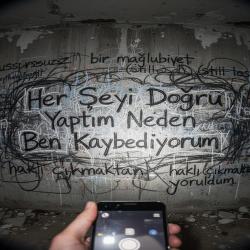 bir mağlubiyet
Her Şeyi Doğru
Yaptım Neden
Ben Kaybediyorum
haklı çıkmaktan
haklı çıkmaktan
yoruldum.